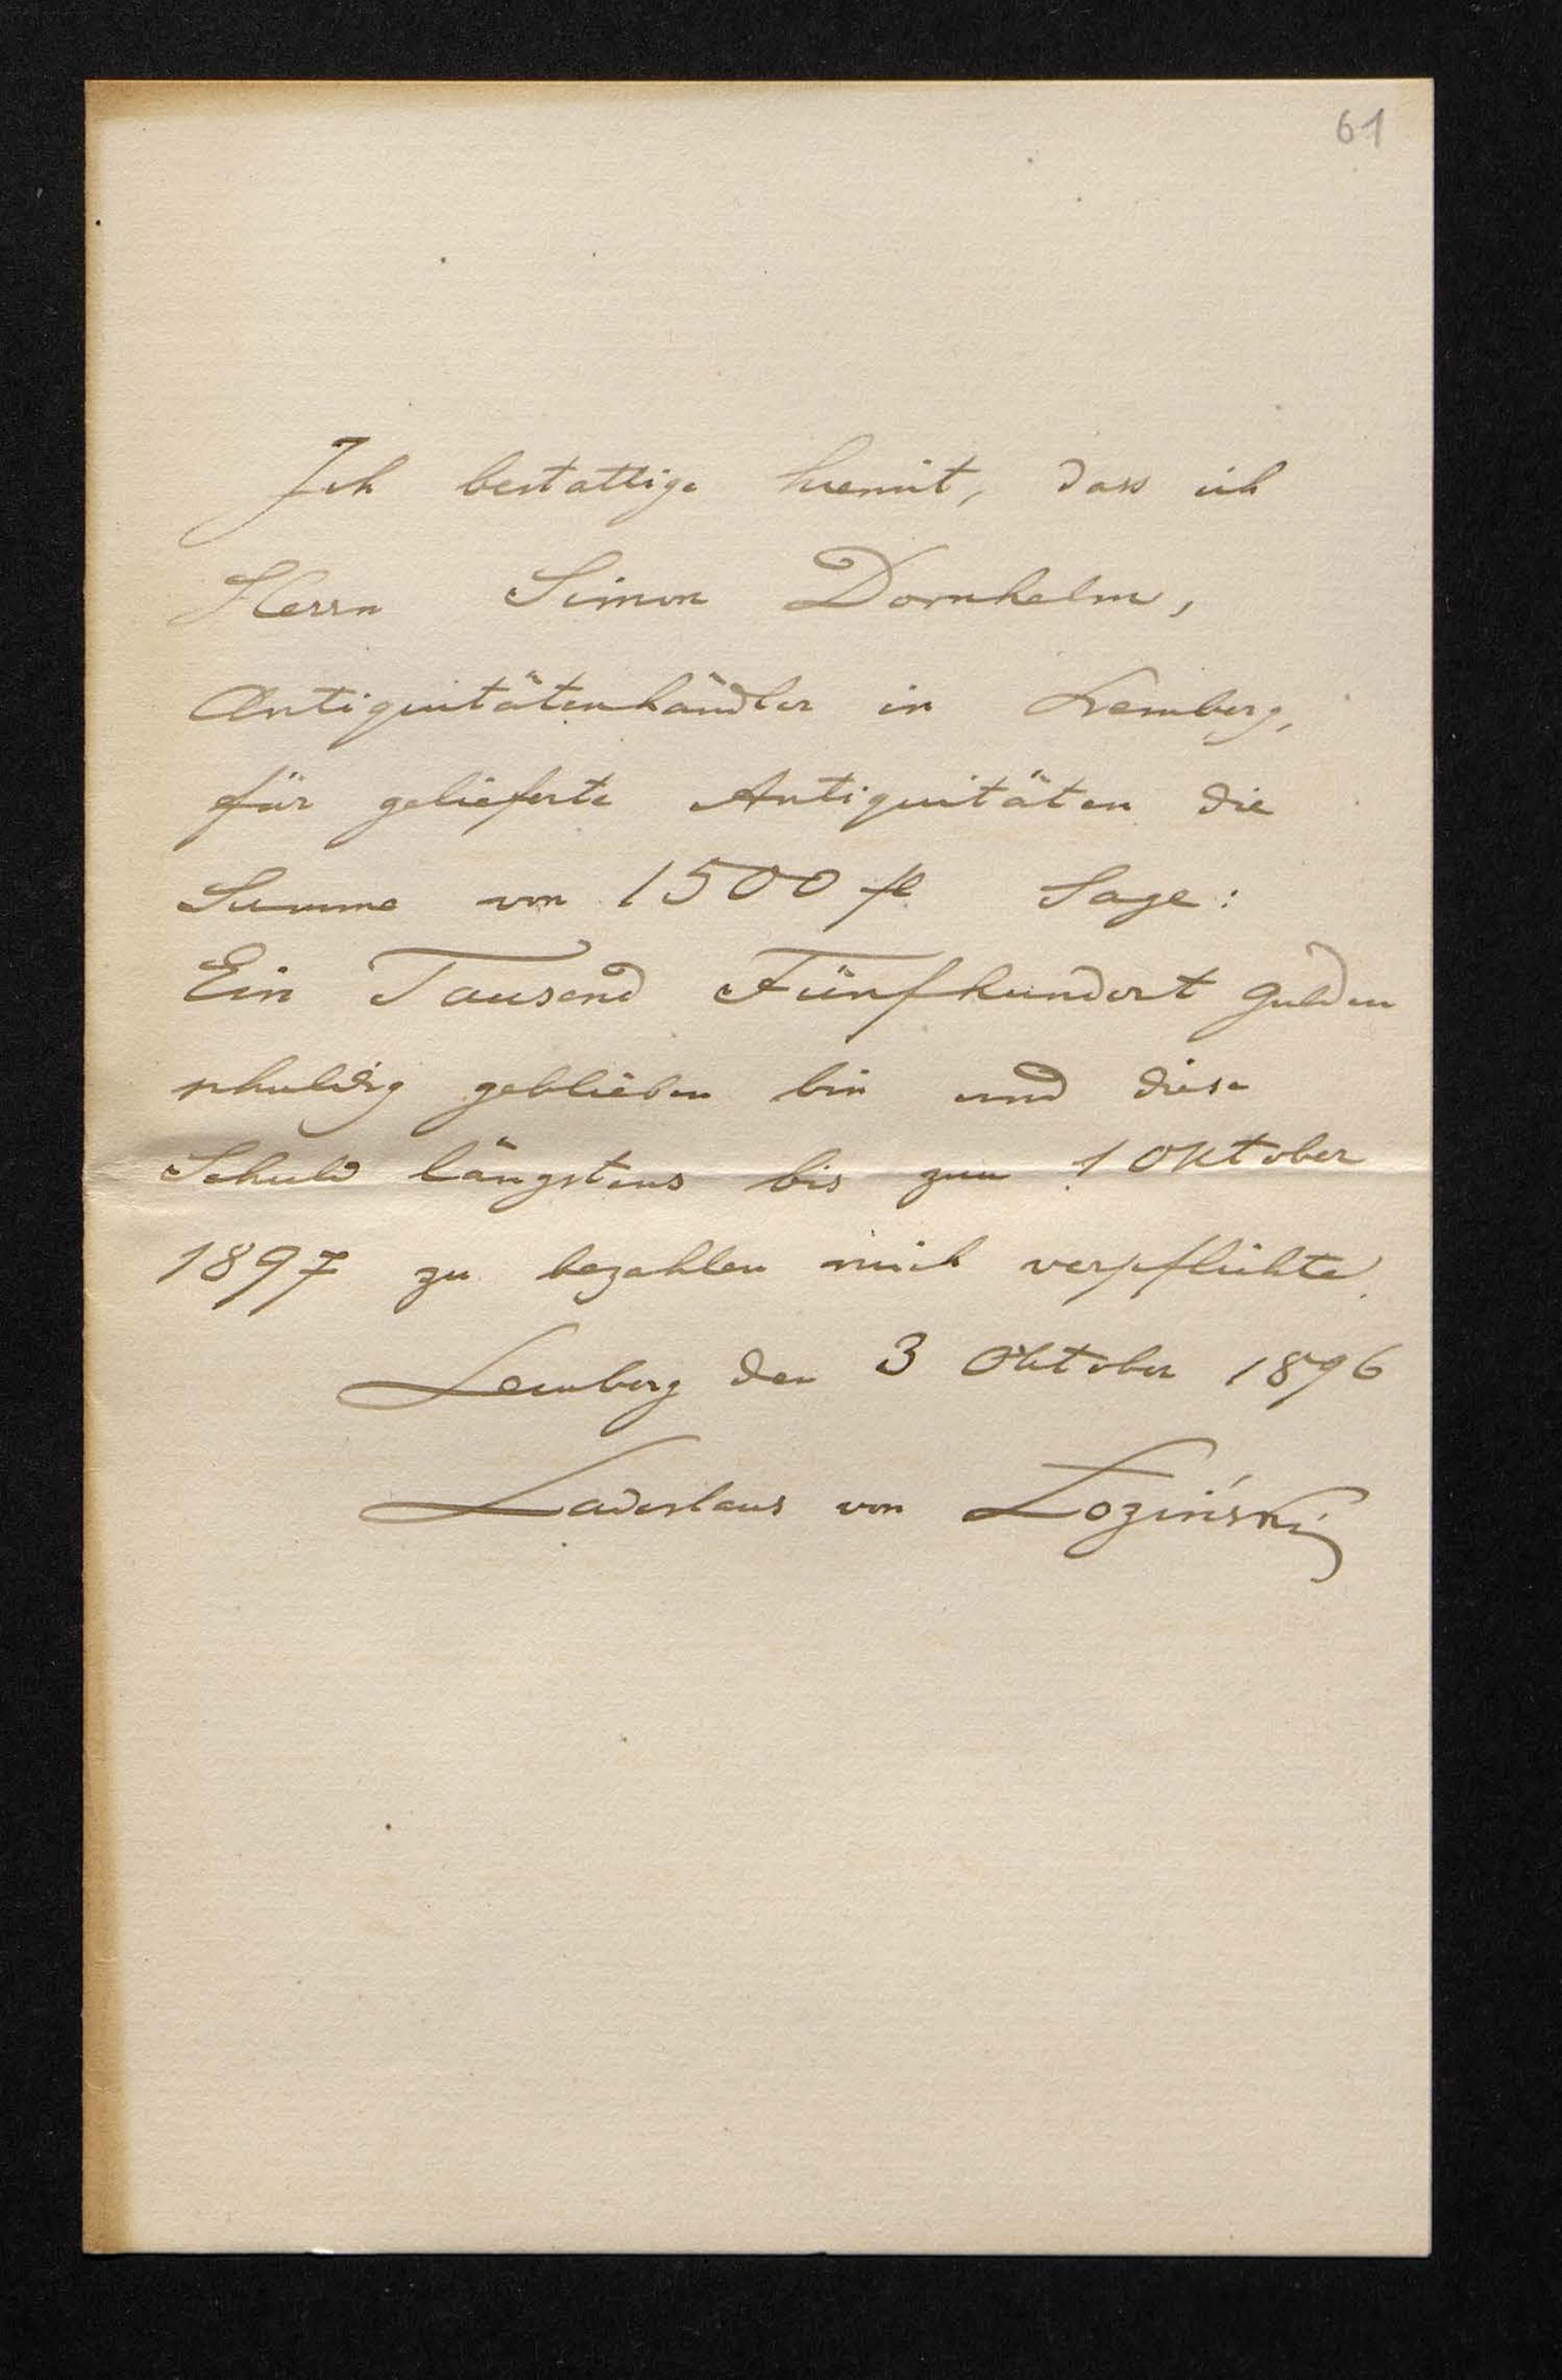 61
Ich bestattige hiemit, dass ich
Herrn Simon Dornhelm,
Antiquitätenhändler in Lemberg,
für gelieferte Antiquitäten die
Summe von 1500 fl Sage:
Ein Tausend Fünfhundert Gulden
schuldig geblieben bin und diese
Schuld längstens bis zum 1 Oktober
1897 zu bezahlen mich verpflichte.
Lemberg den 3 Oktober 1896
Ladislaus von Łoziński